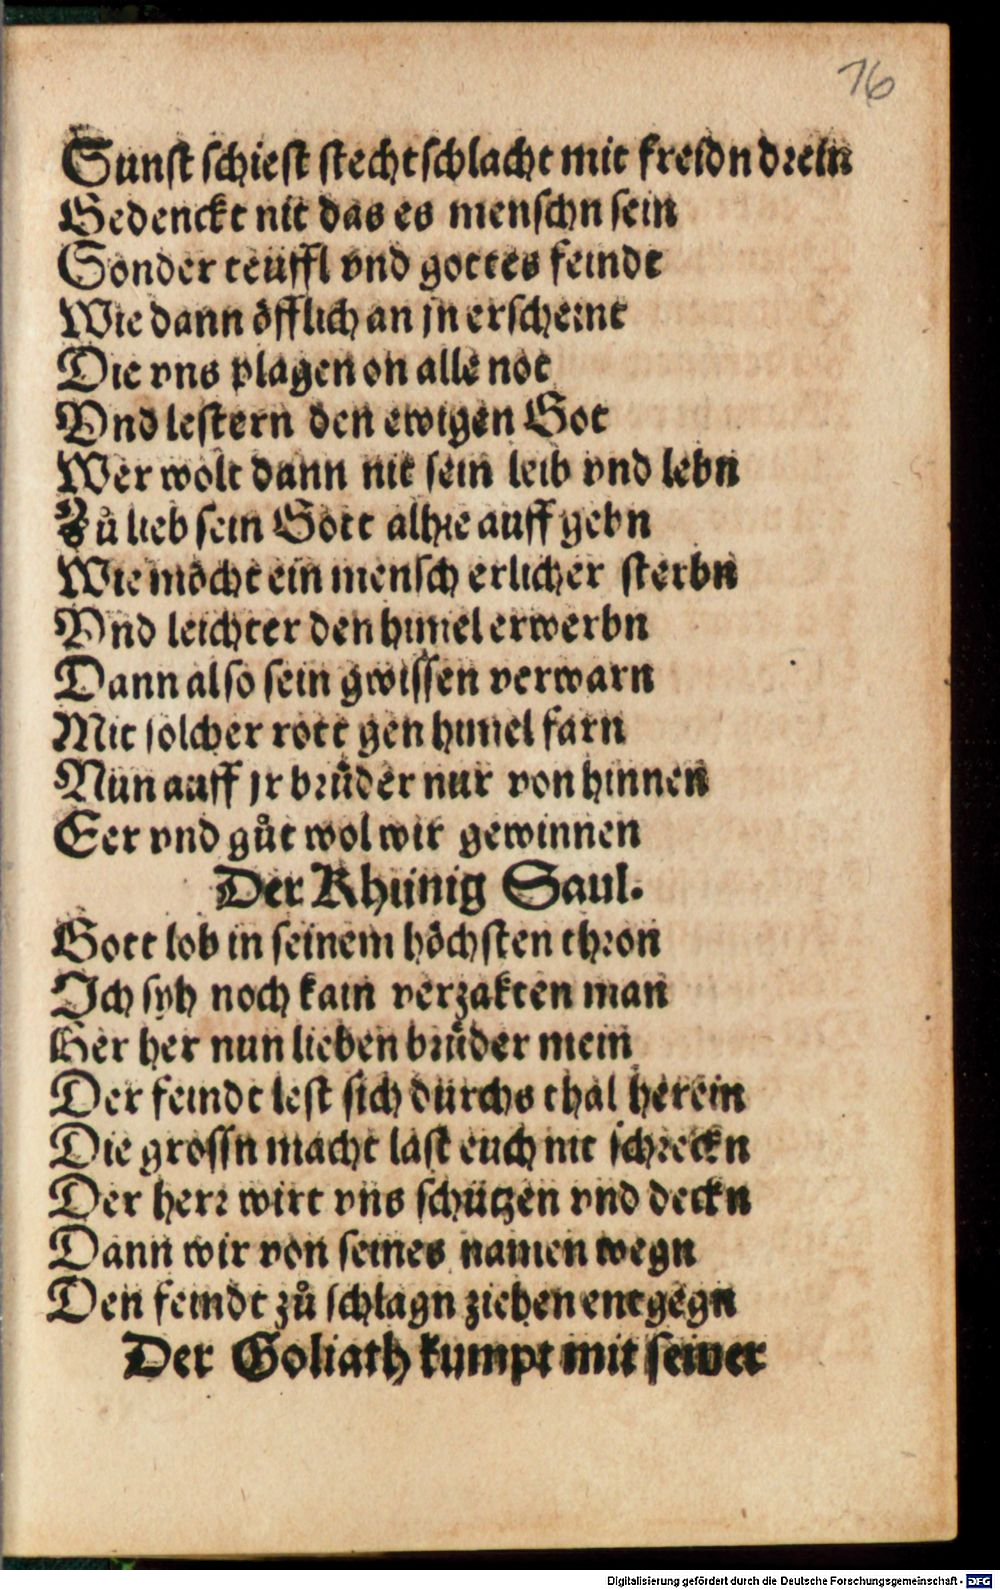 76
Sunst schiest stecht schlacht mit freidn drein
Gedenckt nit das es menschn sein
Sonder teüffl vnd gottes feindt
Wie dann öfflich an jn erscheint
Die vns plagen on alle not
Vnd lestern den ewigen Got
Wer wolt dann nit sein leib vnd lebn
Zů lieb sein Gott alhie auff gebn
Wie möcht ein mensch erlicher sterbn
Vnd leichter den himel erwerbn
Dann also sein gwissen verwarn
Mit solcher rott gen himel farn
Nun auff jr brůder nur von hinnen
Eer vnd gůt wol wir gewinnen
Der Khünig Saul.
Gott lob in seinem höchsten thron
Ich syh noch kain verzakten man
Her her nun lieben brůder mein
Der feindt lest sich durchs thal herein
Die grossn macht last euch nit schreckn
Der herr wirt vns schützen vnd deckn
Dann wir von seines namen wegn
Den feindt zů schlagn ziehen entgegn
Der Goliath kumpt mit seiner
Digitalisierung gefördert durch die Deutsche Forschungsgemeinschaft - DFG